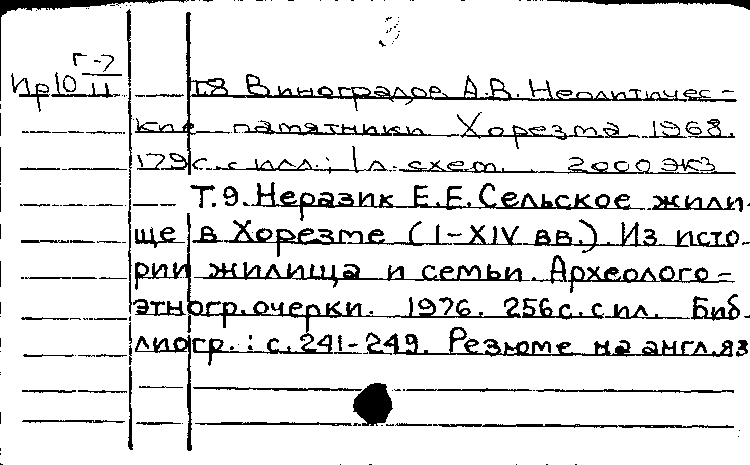 3
Г-7
Ир10 11 Т.8 Виноградов А.В. Неолитичес-
кие памятники Хорезма 1968.
179с. с илл.; 1л. схем. 2000 экз
Т.9. Неразик Е.Е. Сельское жили-
ще в Хорезме (I-XIV вв.). Из исто-
рии жилища и семьи. Археолого-
этногр. очерки. 1976. 256с. с ил. Биб-
лиогр.: с.241-249. Резюме на англ.яз